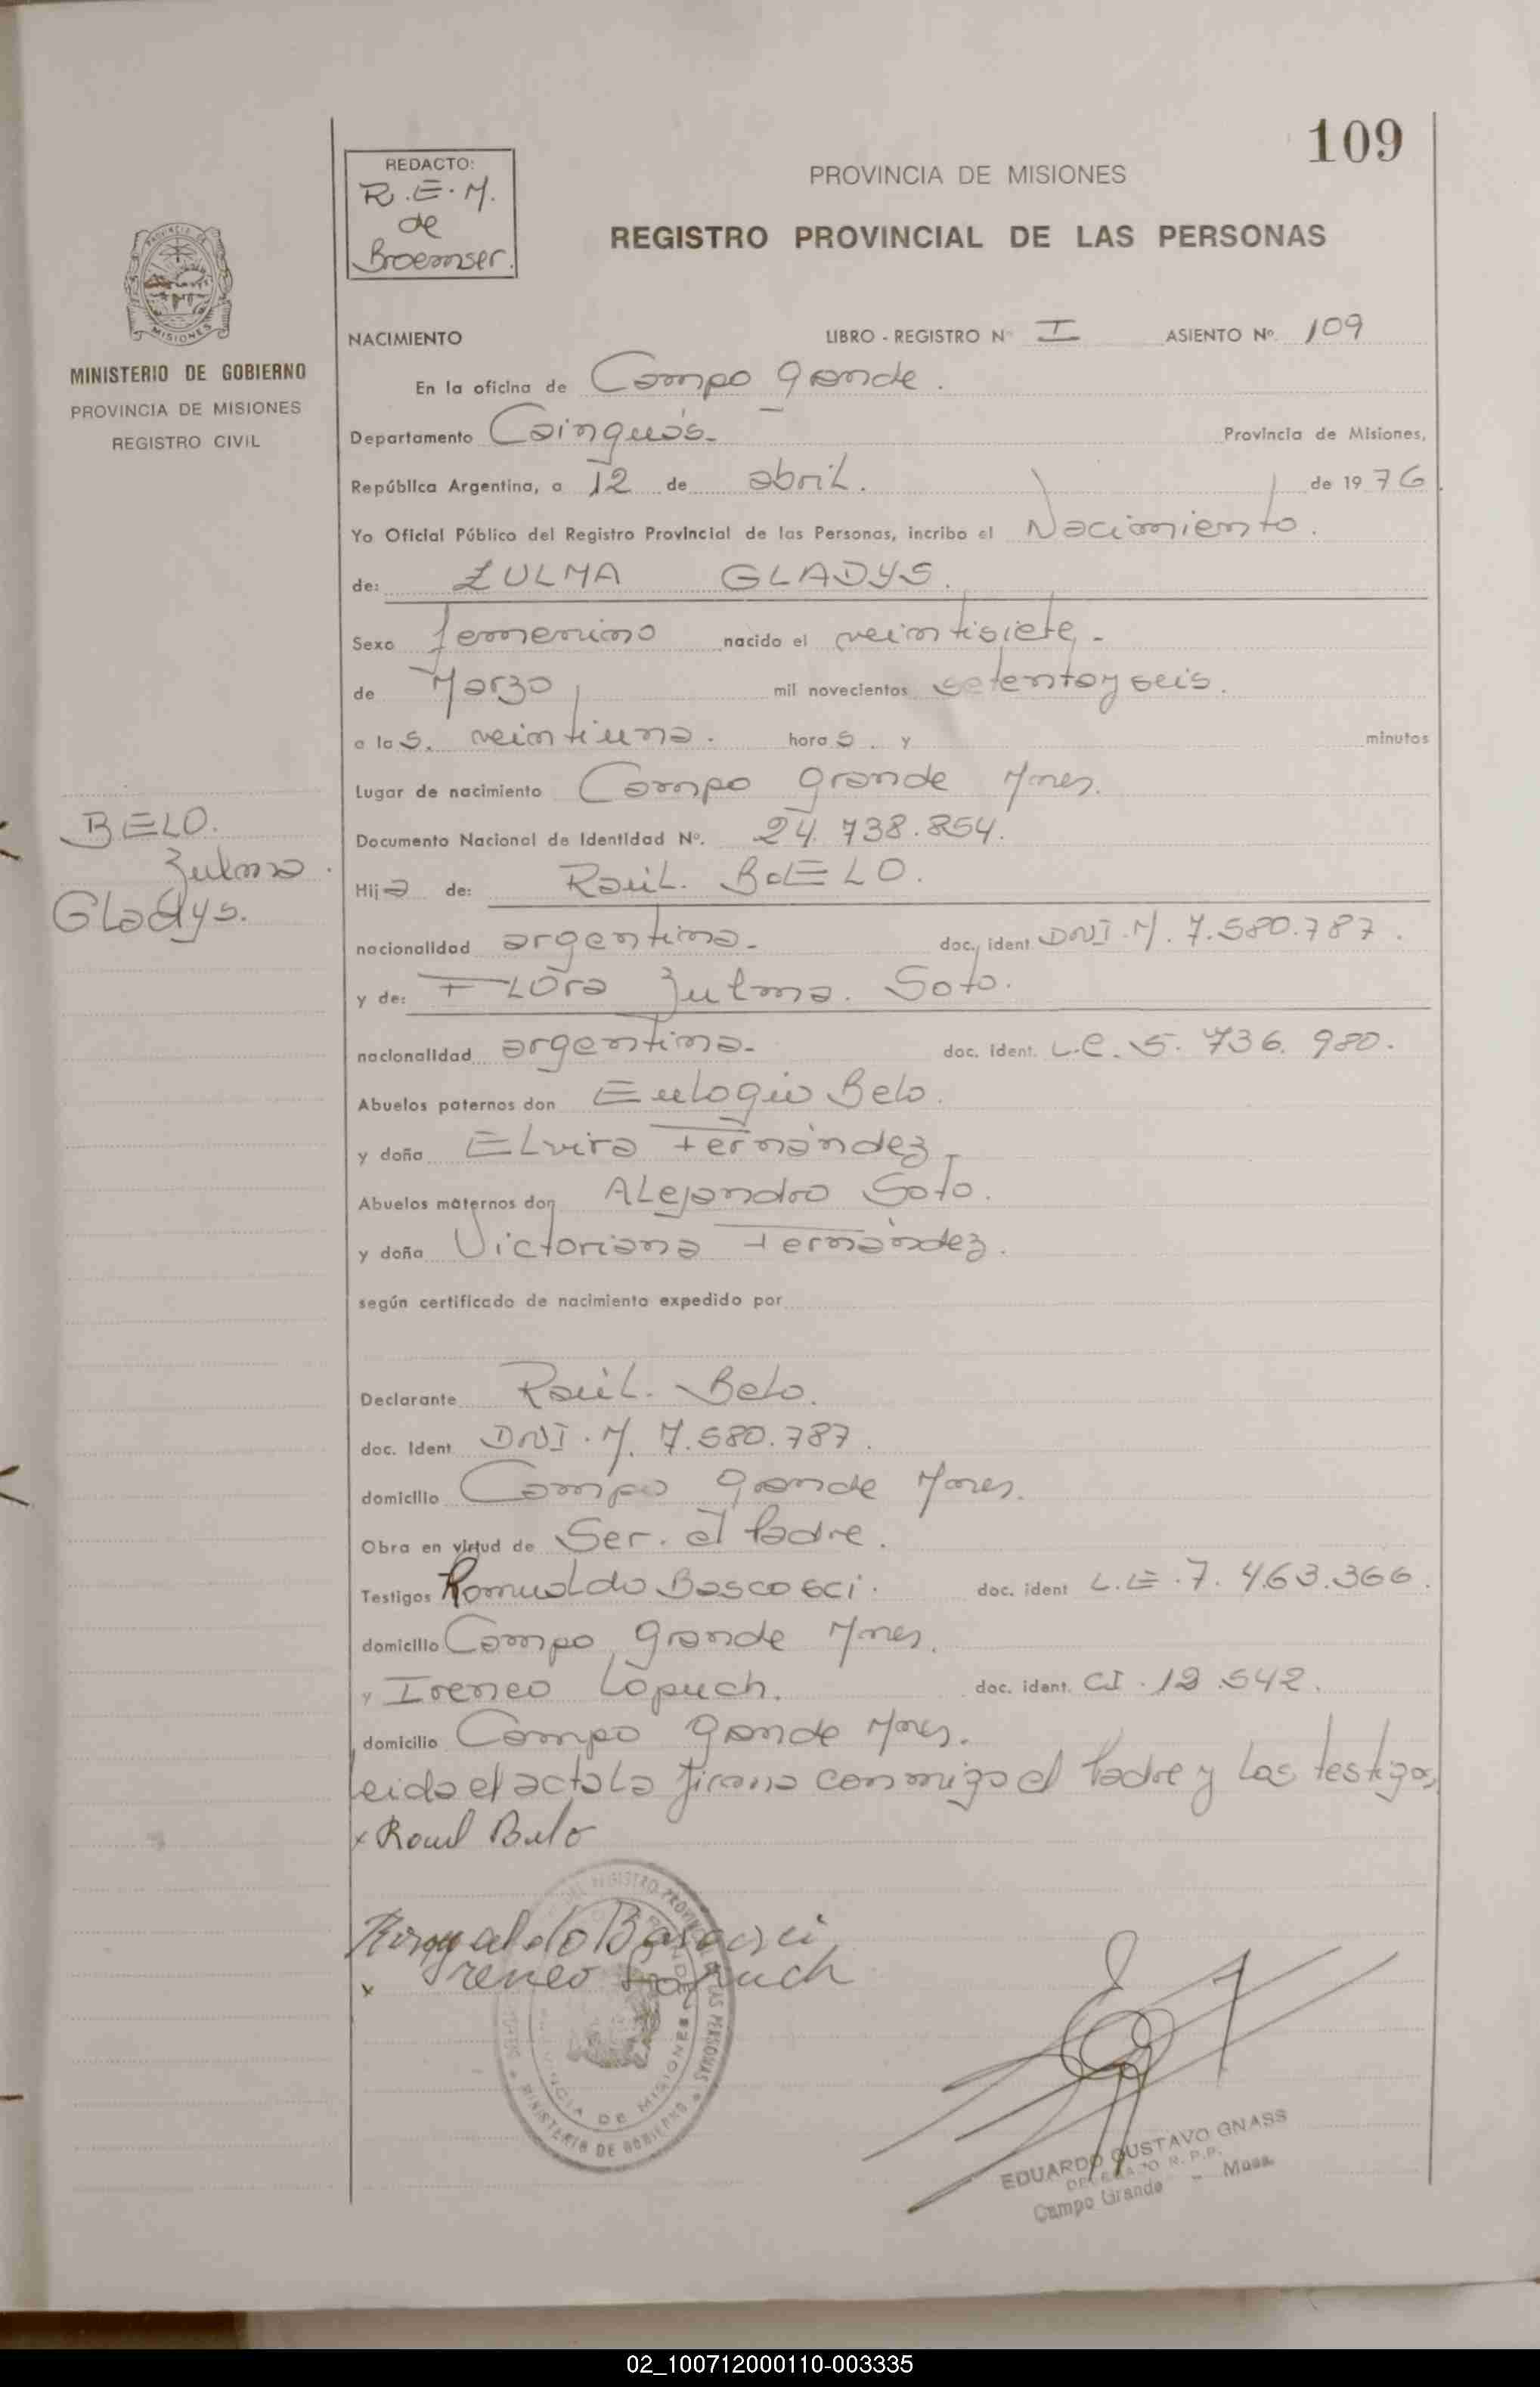 109
REDACTO:
R.E.M.
de
Broemser.
PROVINCIA DE MISIONES
REGISTRO PROVINCIAL DE LAS PERSONAS
MINISTERIO DE GOBIERNO
PROVINCIA DE MISIONES
REGISTRO CIVIL
NACIMIENTO LIBRO - REGISTRO Nº I ASIENTO Nº. 109
En la oficina de Campo Grande.
Departamento Cainguás- Provincia de Misiones,
República Argentina, a 12 de abril. de 1976
Yo Oficial Público del Registro Provincial de las Personas, incribo el Nacimiento.
de: ZULMA GLADYS.
Sexo femenino nacido el veintisiete-
de Marzo mil novecientos setentayseis.
a las. veintiuna. horas y minutos
Lugar de nacimiento Campo Grande Mnes.
Documento Nacional de Identidad Nº. 24.738.854.
BELO.
Zulma
Gladys.
Hija de: Raúl. BELO.
nacionalidad argentina- doc. ident DNI.M. 7.580.787.
y de: Flora Zulma. Soto.
nacionalidad argentina- doc. ident. L.C. 5.736.980.
Abuelos paternos don Eulogio Belo.
y doña Elvira Fernández-
Abuelos maternos don Alejandro Soto.
y doña Victoriana Fernández.
según certificado de nacimiento expedido por
Declarante Raúl. Belo.
doc. Ident DNI.M. 7.580.787.
domicilio Campo Grande Mnes.
Obra en virtud de Ser. el Padre.
Testigos Romualdo Bascosci. doc. ident L.E.7.463.366.
domicilio Campo Grande Mnes.
y Ireneo Lopuch. doc. ident. CI.12.542.
domicilio Campo Grande Mnes.
Leida el acta la firma conmigo el Padre y los testigos
x Raul Belo
Romualdo Bascosci
x Ireneo Lopuch
DEL REGISTRO PROVINCIAL DE LAS PERSONAS
MINISTERIO DE GOBIERNO
PROVINCIA DE MISIONES
EDUARDO GUSTAVO GNASS
DELEGADO R.P.P.
Campo Grande - Mnes.
02_100712000110-003335